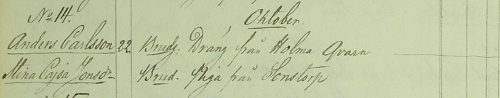 No 14.
Oktober.
Anders Carlsson 22 Brudg. Dräng från Holma Qvarn
Stina Cajsa Jonsdr Brud. Piga från Sonstorp